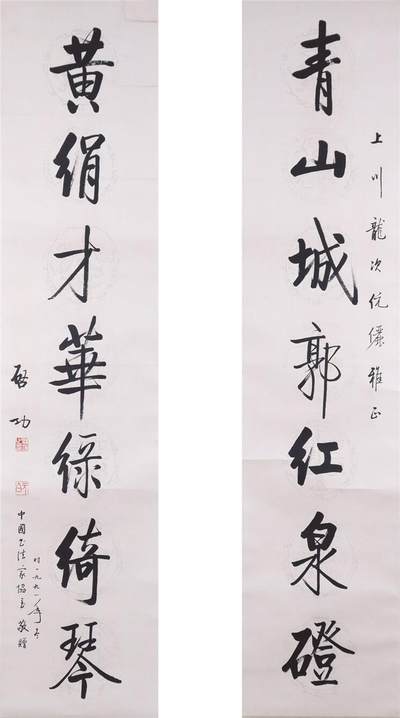 上川龍次伉儷雅正
青山城郭紅泉磴
黃絹才華綠綺琴
啓功
中國書法家協會敬贈
時一九九一年